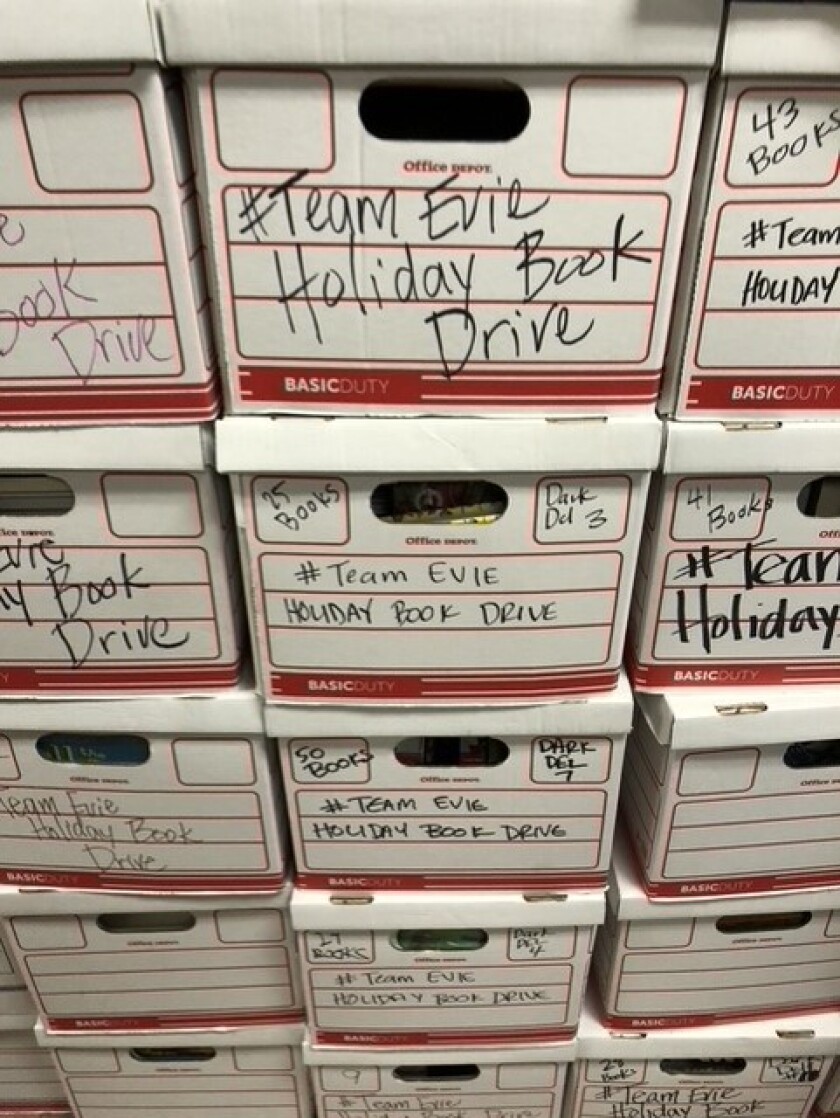 Office DEPOT
#Team Evie
Holiday Book
Drive
BASICDUTY
43
BOOKS
#Team
HOLIDAY
BASICDUTY
e
Book
Drive
25
BOOKS
Dark
Del 3
Office DEPOT
#Team EVIE
HOLIDAY BOOK DRIVE
BASICDUTY
41
Books
#Team
Holiday
BASICDUTY
Book
Drive
50
BOOKS
DARK
DEL
7
Office DEPOT
#TEAM EVIE
HOLIDAY BOOK DRIVE
BASICDUTY
Team Evie
Holiday Book
Drive
BASICDUTY
BASICDUTY
BOOKS
Dark
Del
4
#Team EVIE
HOLIDAY BOOK DRIVE
BASICDUTY
BASICDUTY
BASICDUTY
9
#Team Evie
Holiday Book Drive
28
Books
#Team Evie
Holiday Book